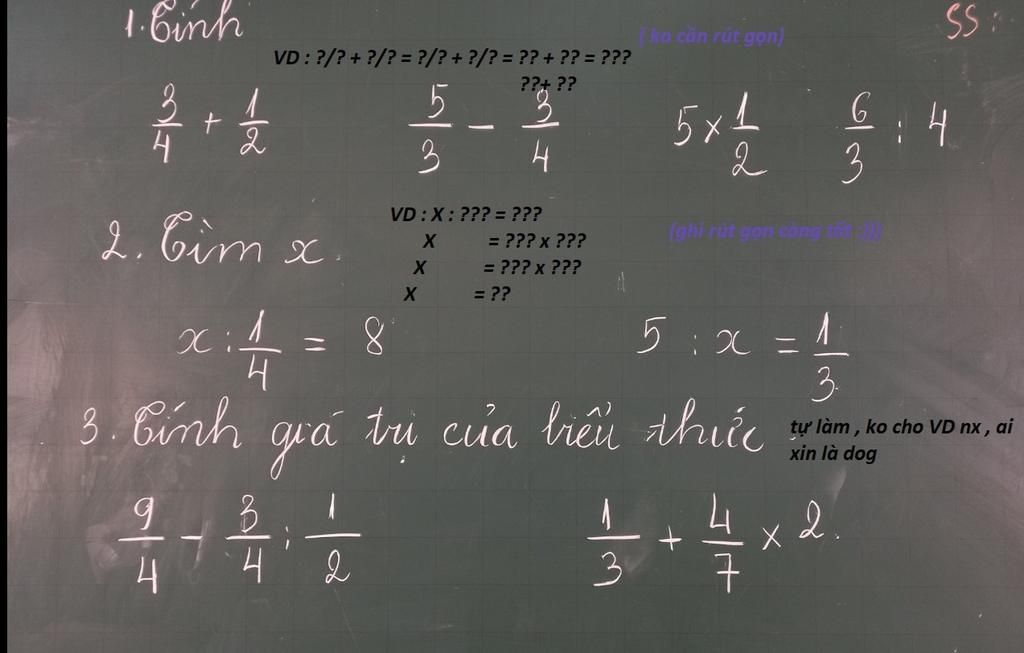 1. Tính
SS:
( ko cần rút gọn)
VD : ?/? + ?/? = ?/? + ?/? = ?? + ?? = ???
??+ ??
3/4 + 1/2   5/3 - 3/4   5 x 1/2   6/3 : 4
2. Tìm x.
VD : X : ??? = ???
X = ??? x ???
X = ??? x ???
X = ??
(ghi rút gọn càng tốt :)))
x : 1/4 = 8   5 : x = 1/3
3. Tính giá trị của biểu thức
tự làm , ko cho VD nx , ai
xin là dog
9/4 - 3/4 : 1/2   1/3 + 4/7 x 2.